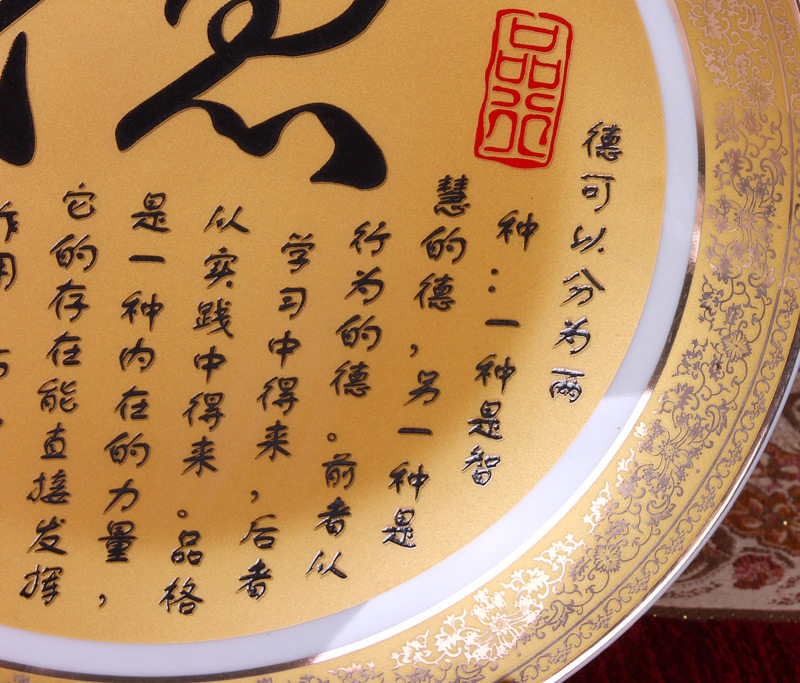 品行
德可以分为两
种：一种是智
慧的德，另一种是
行为的德。前者从
学习中得来，后者
从实践中得来。品格
是一种内在的力量，
它的存在能直接发挥
作用